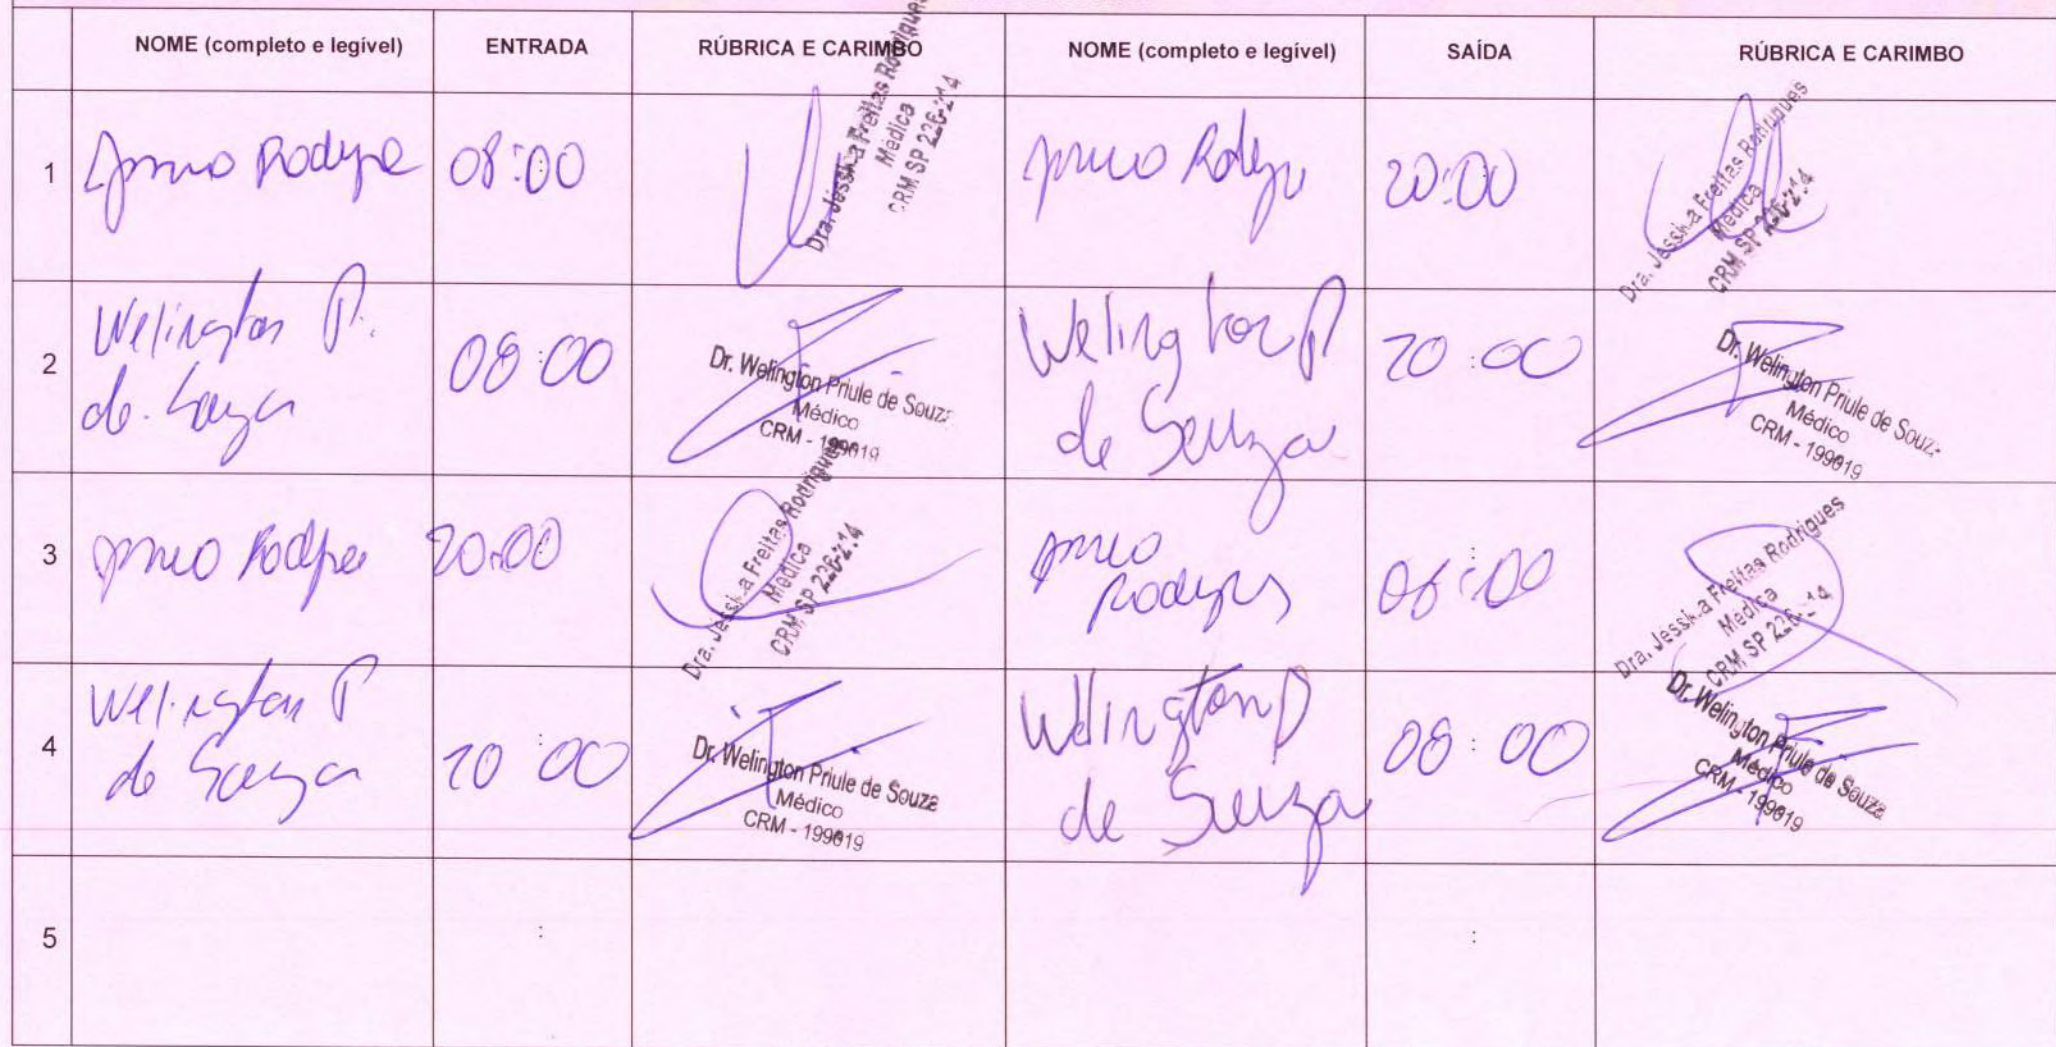 NOME (completo e legível) ENTRADA RÚBRICA E CARIMBO NOME (completo e legível) SAÍDA RÚBRICA E CARIMBO
1 08:00 20:00
Dra. Jéssica Freitas Rodrigues
Médica
CRM SP
Dra. Jéssica Freitas Rodrigues
Médica
CRM SP
2 Welington P. de Souza 08:00
Dr. Welington Priule de Souza
Médico
CRM - 199619
Welington P de Souza 20:00
Dr. Welington Priule de Souza
Médico
CRM - 199619
3 20:00
Dra. Jéssica Freitas Rodrigues
Médica
CRM SP
08:00
Dra. Jéssica Freitas Rodrigues
Médica
CRM SP
4 Welington P de Souza 20:00
Dr. Welington Priule de Souza
Médico
CRM - 199619
Welington P de Souza 08:00
Dr. Welington Priule de Souza
Médico
CRM - 199619
5 : :